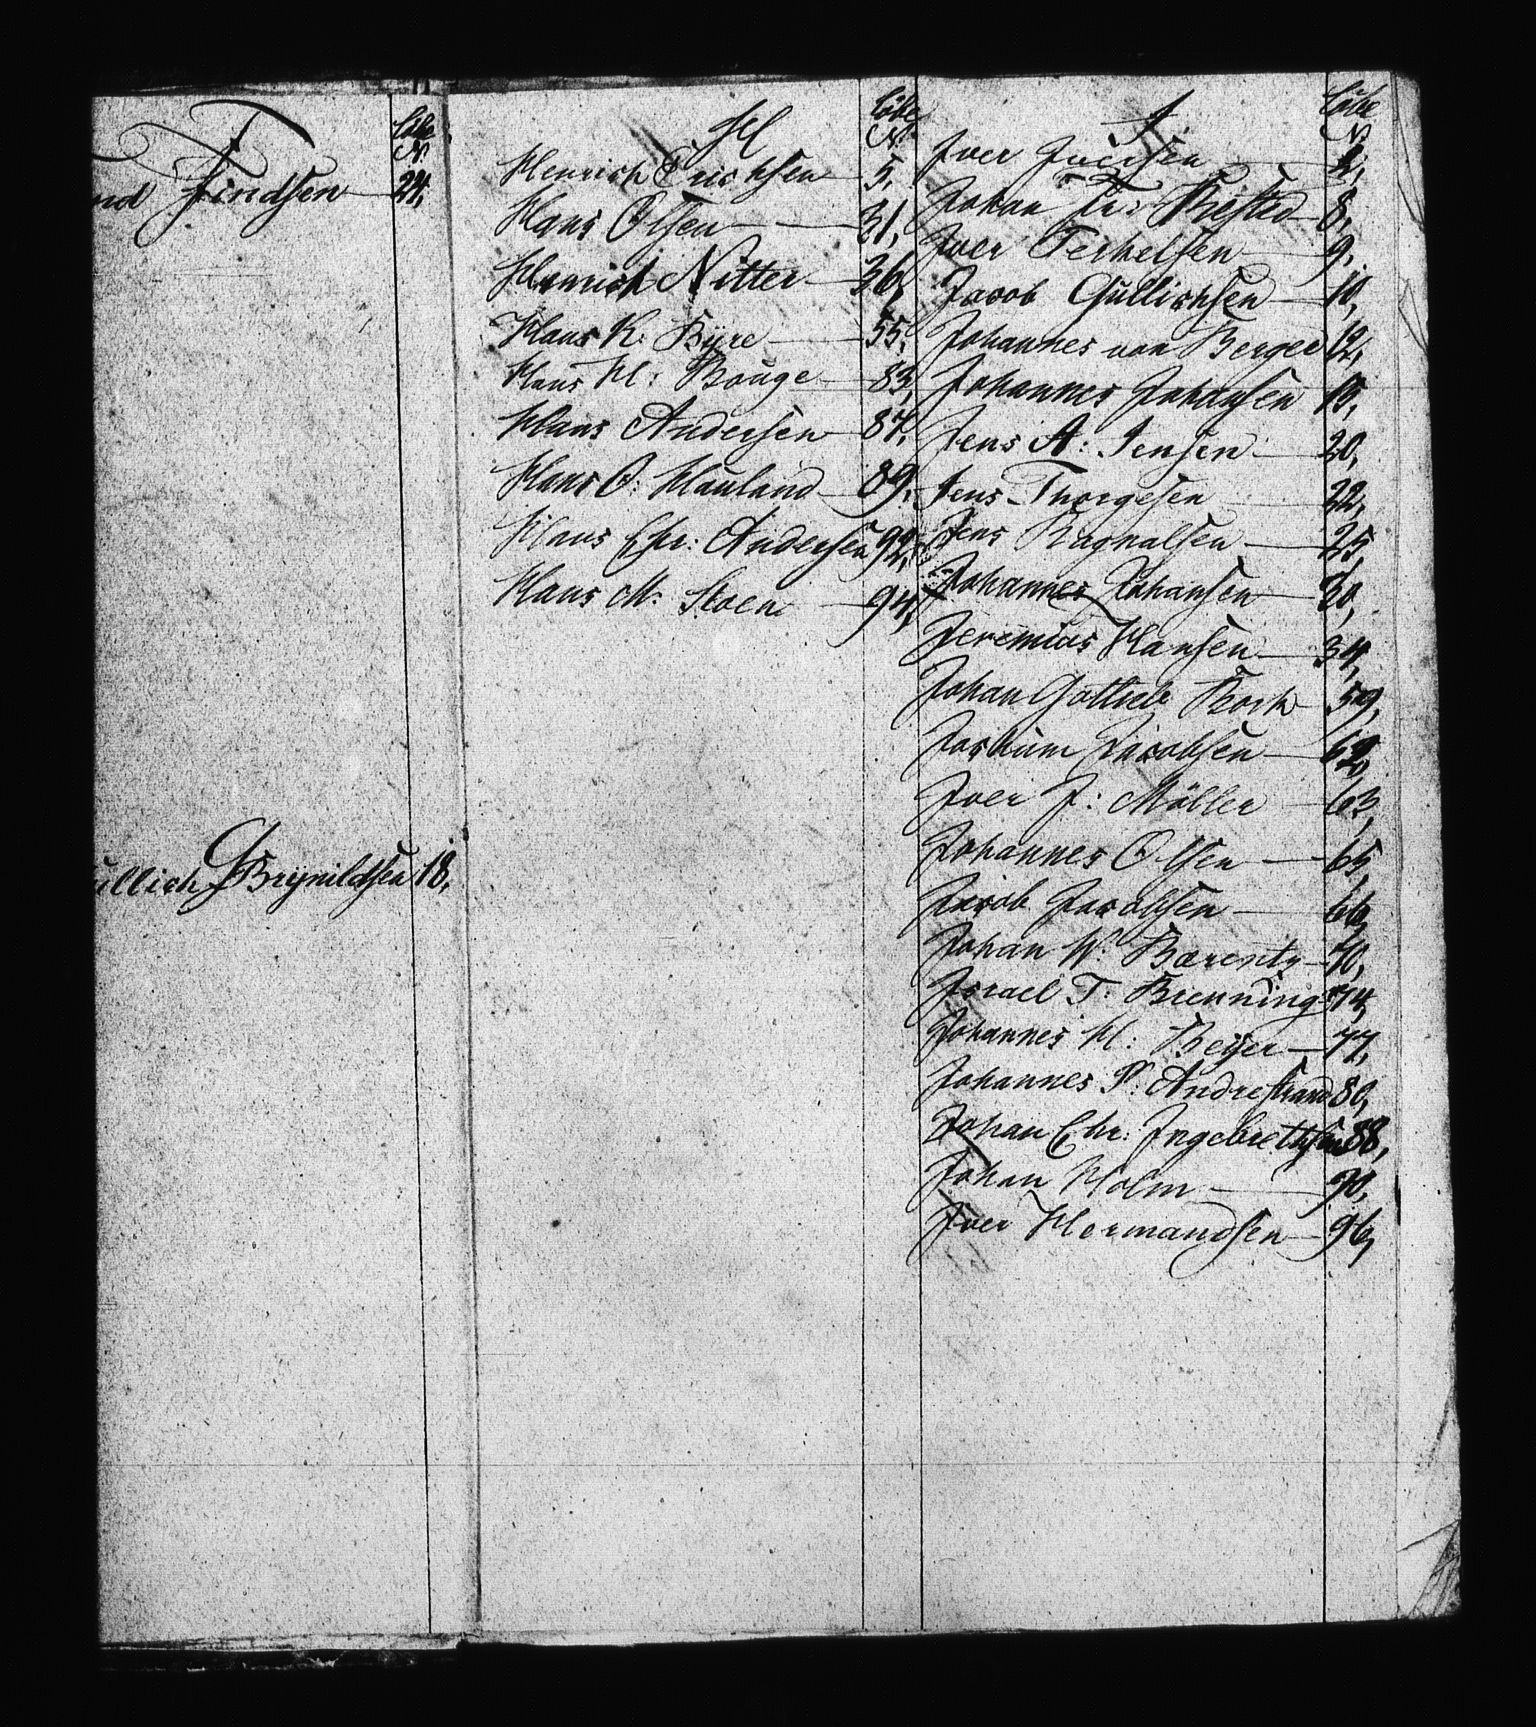 F
Løbe
N.
nd Findsen 24,
G
ullich Brynildsen 18,
H
Løbe
N.
Henrich Erichsen 5,
Hans Olsen 31,
Henrich Nitter 36,
Hans K: Byre 55,
Hans H: Bouge 83,
Hans Andersen 87,
Hans O: Hauland 89,
Hans Chr: Andersen 92,
Hans M: Stoen 94,
I.
Løbe
N.
Iver Iversen
Johan Fr: Kiested 8,
Iver Terkelsen 9,
Jacob Gullichsen 10,
Johannes von Berger 12,
Johannes Johansen 15,
Jens A: Jensen 20,
Jens Thorgesen 22,
Jens Ragnalsen 25,
Johannes Johansen 30,
Jeremias Hansen 34,
Johan Gottlieb Bock 59,
Jochum Jacobsen 62,
Iver J: Müller 63,
Johannes Olsen 65,
Jacob Jacobsen 66,
Johan W: Bærentz 70,
Israel T: Brenning 74,
Johannes H: Beyer 77,
Johannes P: Andrestrand 80,
Johan Chr: Ingebrethsen 88,
Johan Holm 90,
Iver Hermandsen 96,